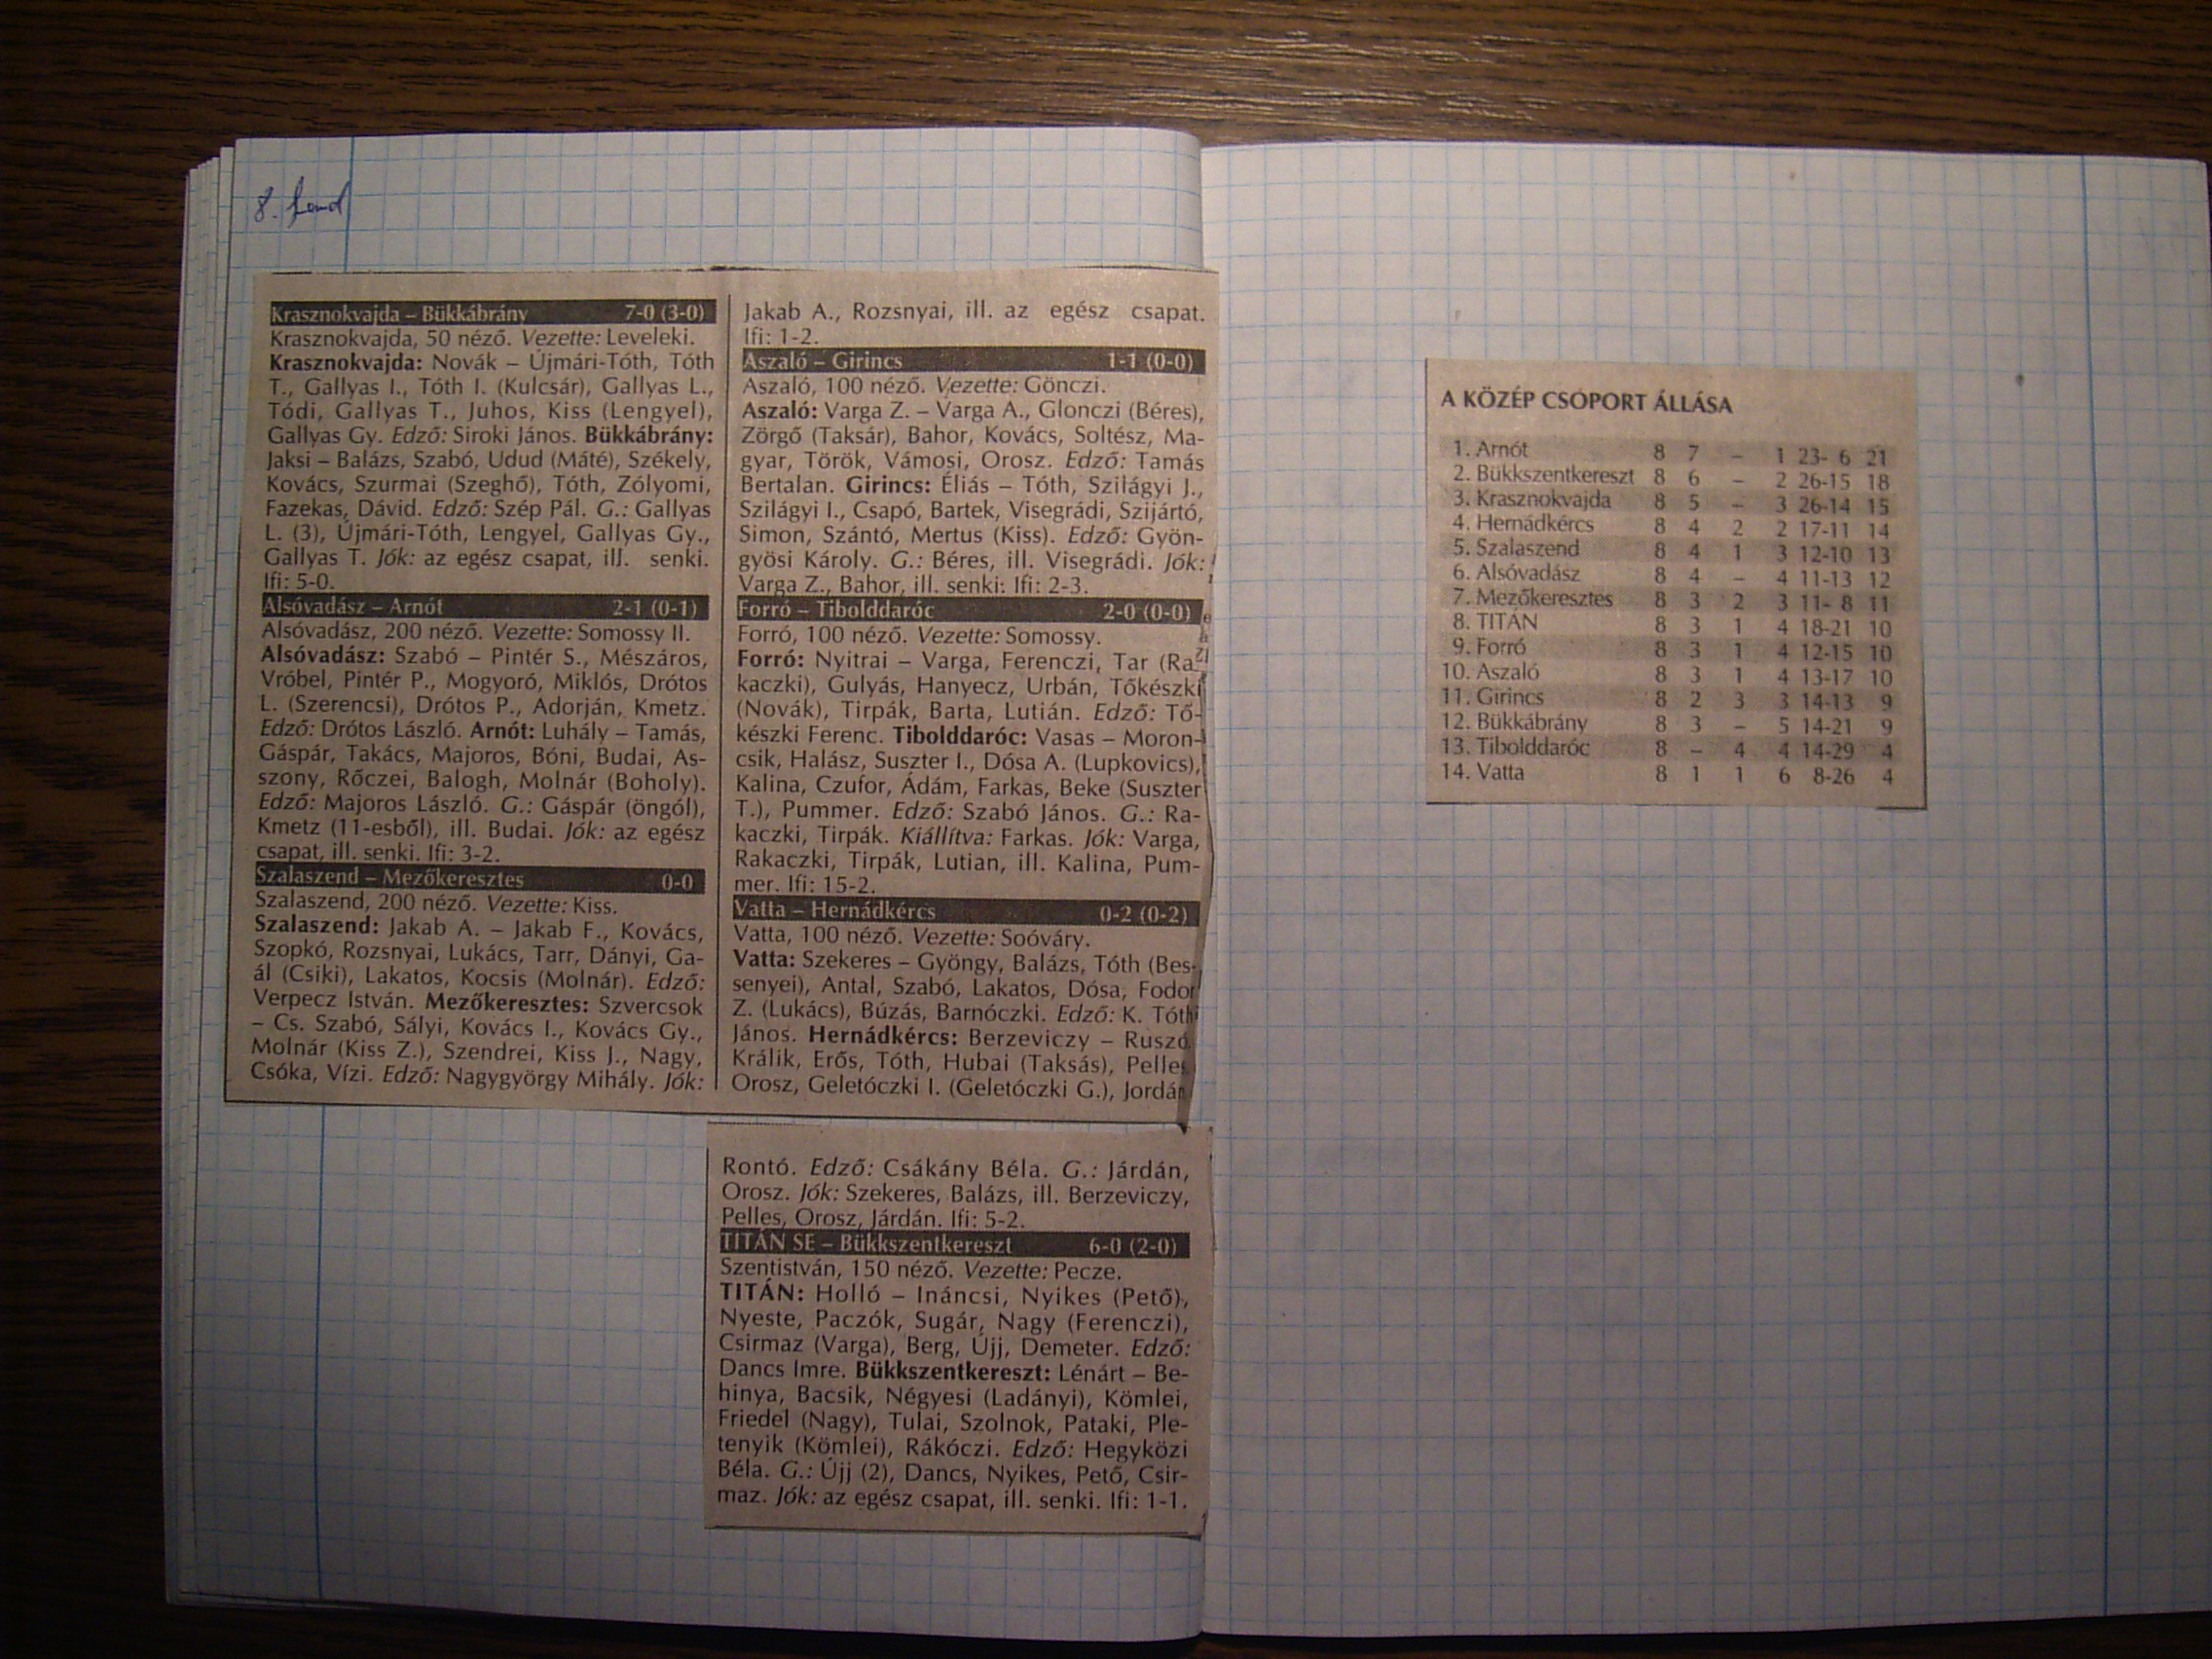 8. ford
Krasznokvajda – Bükkábrány 7-0 (3-0)
Krasznokvajda, 50 néző. Vezette: Leveleki.
Krasznokvajda: Novák – Újmári-Tóth, Tóth
T., Gallyas I., Tóth I. (Kulcsár), Gallyas L.,
Tódi, Gallyas T., Juhos, Kiss (Lengyel),
Gallyas Gy. Edző: Siroki János. Bükkábrány:
Jaksi – Balázs, Szabó, Udud (Máté), Székely,
Kovács, Szurmai (Szeghő), Tóth, Zólyomi,
Fazekas, Dávid. Edző: Szép Pál. G.: Gallyas
L. (3), Újmári-Tóth, Lengyel, Gallyas Gy.,
Gallyas T. Jók: az egész csapat, ill. senki.
Ifi: 5-0.
Alsóvadász – Arnót 2-1 (0-1)
Alsóvadász, 200 néző. Vezette: Somossy II.
Alsóvadász: Szabó – Pintér S., Mészáros,
Vróbel, Pintér P., Mogyoró, Miklós, Drótos
L. (Szerencsi), Drótos P., Adorján, Kmetz.
Edző: Drótos László. Arnót: Luhály – Tamás,
Gáspár, Takács, Majoros, Bóni, Budai, As-
szony, Rőczei, Balogh, Molnár (Boholy).
Edző: Majoros László. G.: Gáspár (öngól),
Kmetz (11-esből), ill. Budai. Jók: az egész
csapat, ill. senki. Ifi: 3-2.
Szalaszend – Mezőkeresztes 0-0
Szalaszend, 200 néző. Vezette: Kiss.
Szalaszend: Jakab A. – Jakab F., Kovács,
Szopkó, Rozsnyai, Lukács, Tarr, Dányi, Ga-
ál (Csiki), Lakatos, Kocsis (Molnár). Edző:
Verpecz István. Mezőkeresztes: Szvercsok
– Cs. Szabó, Sályi, Kovács I., Kovács Gy.,
Molnár (Kiss Z.), Szendrei, Kiss J., Nagy,
Csóka, Vízi. Edző: Nagygyörgy Mihály. Jók:
Jakab A., Rozsnyai, ill. az egész csapat.
Ifi: 1-2.
Aszaló – Girincs 1-1 (0-0)
Aszaló, 100 néző. Vezette: Gönczi.
Aszaló: Varga Z. – Varga A., Glonczi (Béres),
Zörgő (Taksár), Bahor, Kovács, Soltész, Ma-
gyar, Török, Vámosi, Orosz. Edző: Tamás
Bertalan. Girincs: Éliás – Tóth, Szilágyi J.,
Szilágyi I., Csapó, Bartek, Visegrádi, Szijártó,
Simon, Szántó, Mertus (Kiss). Edző: Gyön-
gyösi Károly. G.: Béres, ill. Visegrádi. Jók:
Varga Z., Bahor, ill. senki: Ifi: 2-3.
Forró – Tibolddaróc 2-0 (0-0)
Forró, 100 néző. Vezette: Somossy.
Forró: Nyitrai – Varga, Ferenczi, Tar (Ra-
kaczki), Gulyás, Hanyecz, Urbán, Tőkészki
(Novák), Tirpák, Barta, Lutián. Edző: Tő-
készki Ferenc. Tibolddaróc: Vasas – Moron-
csik, Halász, Suszter I., Dósa A. (Lupkovics),
Kalina, Czufor, Ádám, Farkas, Beke (Suszter
T.), Pummer. Edző: Szabó János. G.: Ra-
kaczki, Tirpák. Kiállítva: Farkas. Jók: Varga,
Rakaczki, Tirpák, Lutian, ill. Kalina, Pum-
mer. Ifi: 15-2.
Vatta – Hernádkércs 0-2 (0-2)
Vatta, 100 néző. Vezette: Soóváry.
Vatta: Szekeres – Gyöngy, Balázs, Tóth (Bes-
senyei), Antal, Szabó, Lakatos, Dósa, Fodor
Z. (Lukács), Búzás, Barnóczki. Edző: K. Tóth
János. Hernádkércs: Berzeviczy – Ruszó,
Králik, Erős, Tóth, Hubai (Taksás), Pelles,
Orosz, Geletóczki I. (Geletóczki G.), Jordán
Rontó. Edző: Csákány Béla. G.: Járdán,
Orosz. Jók: Szekeres, Balázs, ill. Berzeviczy,
Pelles, Orosz, Járdán. Ifi: 5-2.
TITÁN SE – Bükkszentkereszt 6-0 (2-0)
Szentistván, 150 néző. Vezette: Pecze.
TITÁN: Holló – Ináncsi, Nyikes (Pető),
Nyeste, Paczók, Sugár, Nagy (Ferenczi),
Csirmaz (Varga), Berg, Újj, Demeter. Edző:
Dancs Imre. Bükkszentkereszt: Lénárt – Be-
hinya, Bacsik, Négyesi (Ladányi), Kömlei,
Friedel (Nagy), Tulai, Szolnok, Pataki, Ple-
tenyik (Kömlei), Rákóczi. Edző: Hegyközi
Béla. G.: Újj (2), Dancs, Nyikes, Pető, Csir-
maz. Jók: az egész csapat, ill. senki. Ifi: 1-1.
A KÖZÉP CSOPORT ÁLLÁSA
1. Arnót 8 7 – 1 23- 6 21
2. Bükkszentkereszt 8 6 – 2 26-15 18
3. Krasznokvajda 8 5 – 3 26-14 15
4. Hernádkércs 8 4 2 2 17-11 14
5. Szalaszend 8 4 1 3 12-10 13
6. Alsóvadász 8 4 – 4 11-13 12
7. Mezőkeresztes 8 3 2 3 11- 8 11
8. TITÁN 8 3 1 4 18-21 10
9. Forró 8 3 1 4 12-15 10
10. Aszaló 8 3 1 4 13-17 10
11. Girincs 8 2 3 3 14-13 9
12. Bükkábrány 8 3 – 5 14-21 9
13. Tibolddaróc 8 – 4 4 14-29 4
14. Vatta 8 1 1 6 8-26 4